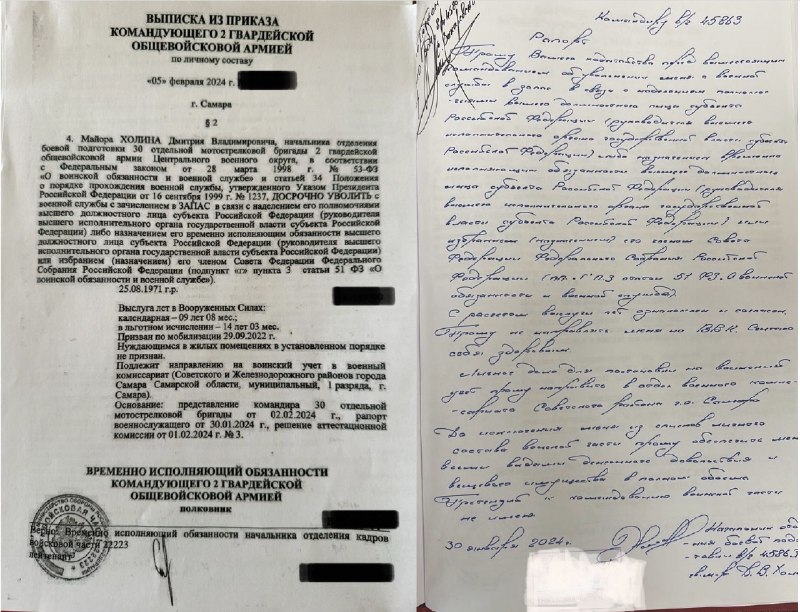 ВЫПИСКА ИЗ ПРИКАЗА
КОМАНДУЮЩЕГО 2 ГВАРДЕЙСКОЙ
ОБЩЕВОЙСКОВОЙ АРМИЕЙ
по личному составу
«05» февраля 2024 г.
г. Самара
§ 2
4. Майора ХОЛИНА Дмитрия Владимировича, начальника отделения
боевой подготовки 30 отдельной мотострелковой бригады 2 гвардейской
общевойсковой армии Центрального военного округа, в соответствии
с Федеральным законом от 28 марта 1998 г. № 53-ФЗ
«О воинской обязанности и военной службе» и статьей 34 Положения
о порядке прохождения военной службы, утвержденного Указом Президента
Российской Федерации от 16 сентября 1999 г. № 1237, ДОСРОЧНО УВОЛИТЬ с
военной службы с зачислением в ЗАПАС в связи с наделением его полномочиями
высшего должностного лица субъекта Российской Федерации (руководителя
высшего исполнительного органа государственной власти субъекта Российской
Федерации) либо назначением его временно исполняющим обязанности высшего
должностного лица субъекта Российской Федерации (руководителя высшего
исполнительного органа государственной власти субъекта Российской Федерации)
или избранием (назначением) его членом Совета Федерации Федерального
Собрания Российской Федерации (подпункт «г» пункта 3 статьи 51 ФЗ «О
воинской обязанности и военной службе»).
25.08.1971 г.р.
Выслуга лет в Вооруженных Силах:
календарная – 09 лет 08 мес.;
в льготном исчислении – 14 лет 03 мес.
Призван по мобилизации 29.09.2022 г.
Нуждающимся в жилых помещениях в установленном порядке
не признан.
Подлежит направлению на воинский учет в военный
комиссариат (Советского и Железнодорожного районов города
Самара Самарской области, муниципальный, 1 разряда, г.
Самара).
Основание: представление командира 30 отдельной
мотострелковой бригады от 02.02.2024 г., рапорт
военнослужащего от 30.01.2024 г., решение аттестационной
комиссии от 01.02.2024 г. № 3.
ВРЕМЕННО ИСПОЛНЯЮЩИЙ ОБЯЗАННОСТИ
КОМАНДУЮЩЕГО 2 ГВАРДЕЙСКОЙ
ОБЩЕВОЙСКОВОЙ АРМИЕЙ
полковник
Верно: Временно исполняющий обязанности начальника отделения кадров
войсковой части 22223
лейтенант
Командиру в/ч 45863
Рапорт
Прошу Вашего ходатайства перед вышестоящим
командованием об увольнении меня с военной
службы в запас в связи с наделением полномо-
чиями высшего должностного лица субъекта
Российской Федерации (руководителя высшего
исполнительного органа государственной власти субъекта
Российской Федерации) либо назначением временно
исполняющим обязанности высшего должностного
лица субъекта Российской Федерации (руководителя
высшего исполнительного органа государственной
власти субъекта Российской Федерации) или
избранием (назначением) его членом Совета
Федерации Федерального Собрания Российской
Федерации (пп. «Г» П.3 статьи 51 ФЗ «О воинской
обязанности и военной службе).
С расчетом выслуги лет ознакомлен и согласен.
Прошу не направлять меня на ВВК. Считаю
себя здоровым.
Личное дело для постановки на воинский
учет прошу направить в отдел военного комис-
сариата Советского района г.о. Самара
До исключения меня из списков личного
состава воинской части прошу обеспечить меня
всеми видами денежного довольствия и
вещевого имущества в полном объеме
Претензий к командованию воинской части
не имею.
30 января 2024г.
Начальник отде
ния боевой подго
товки в/ч 45863
м-р Д.В. Хол